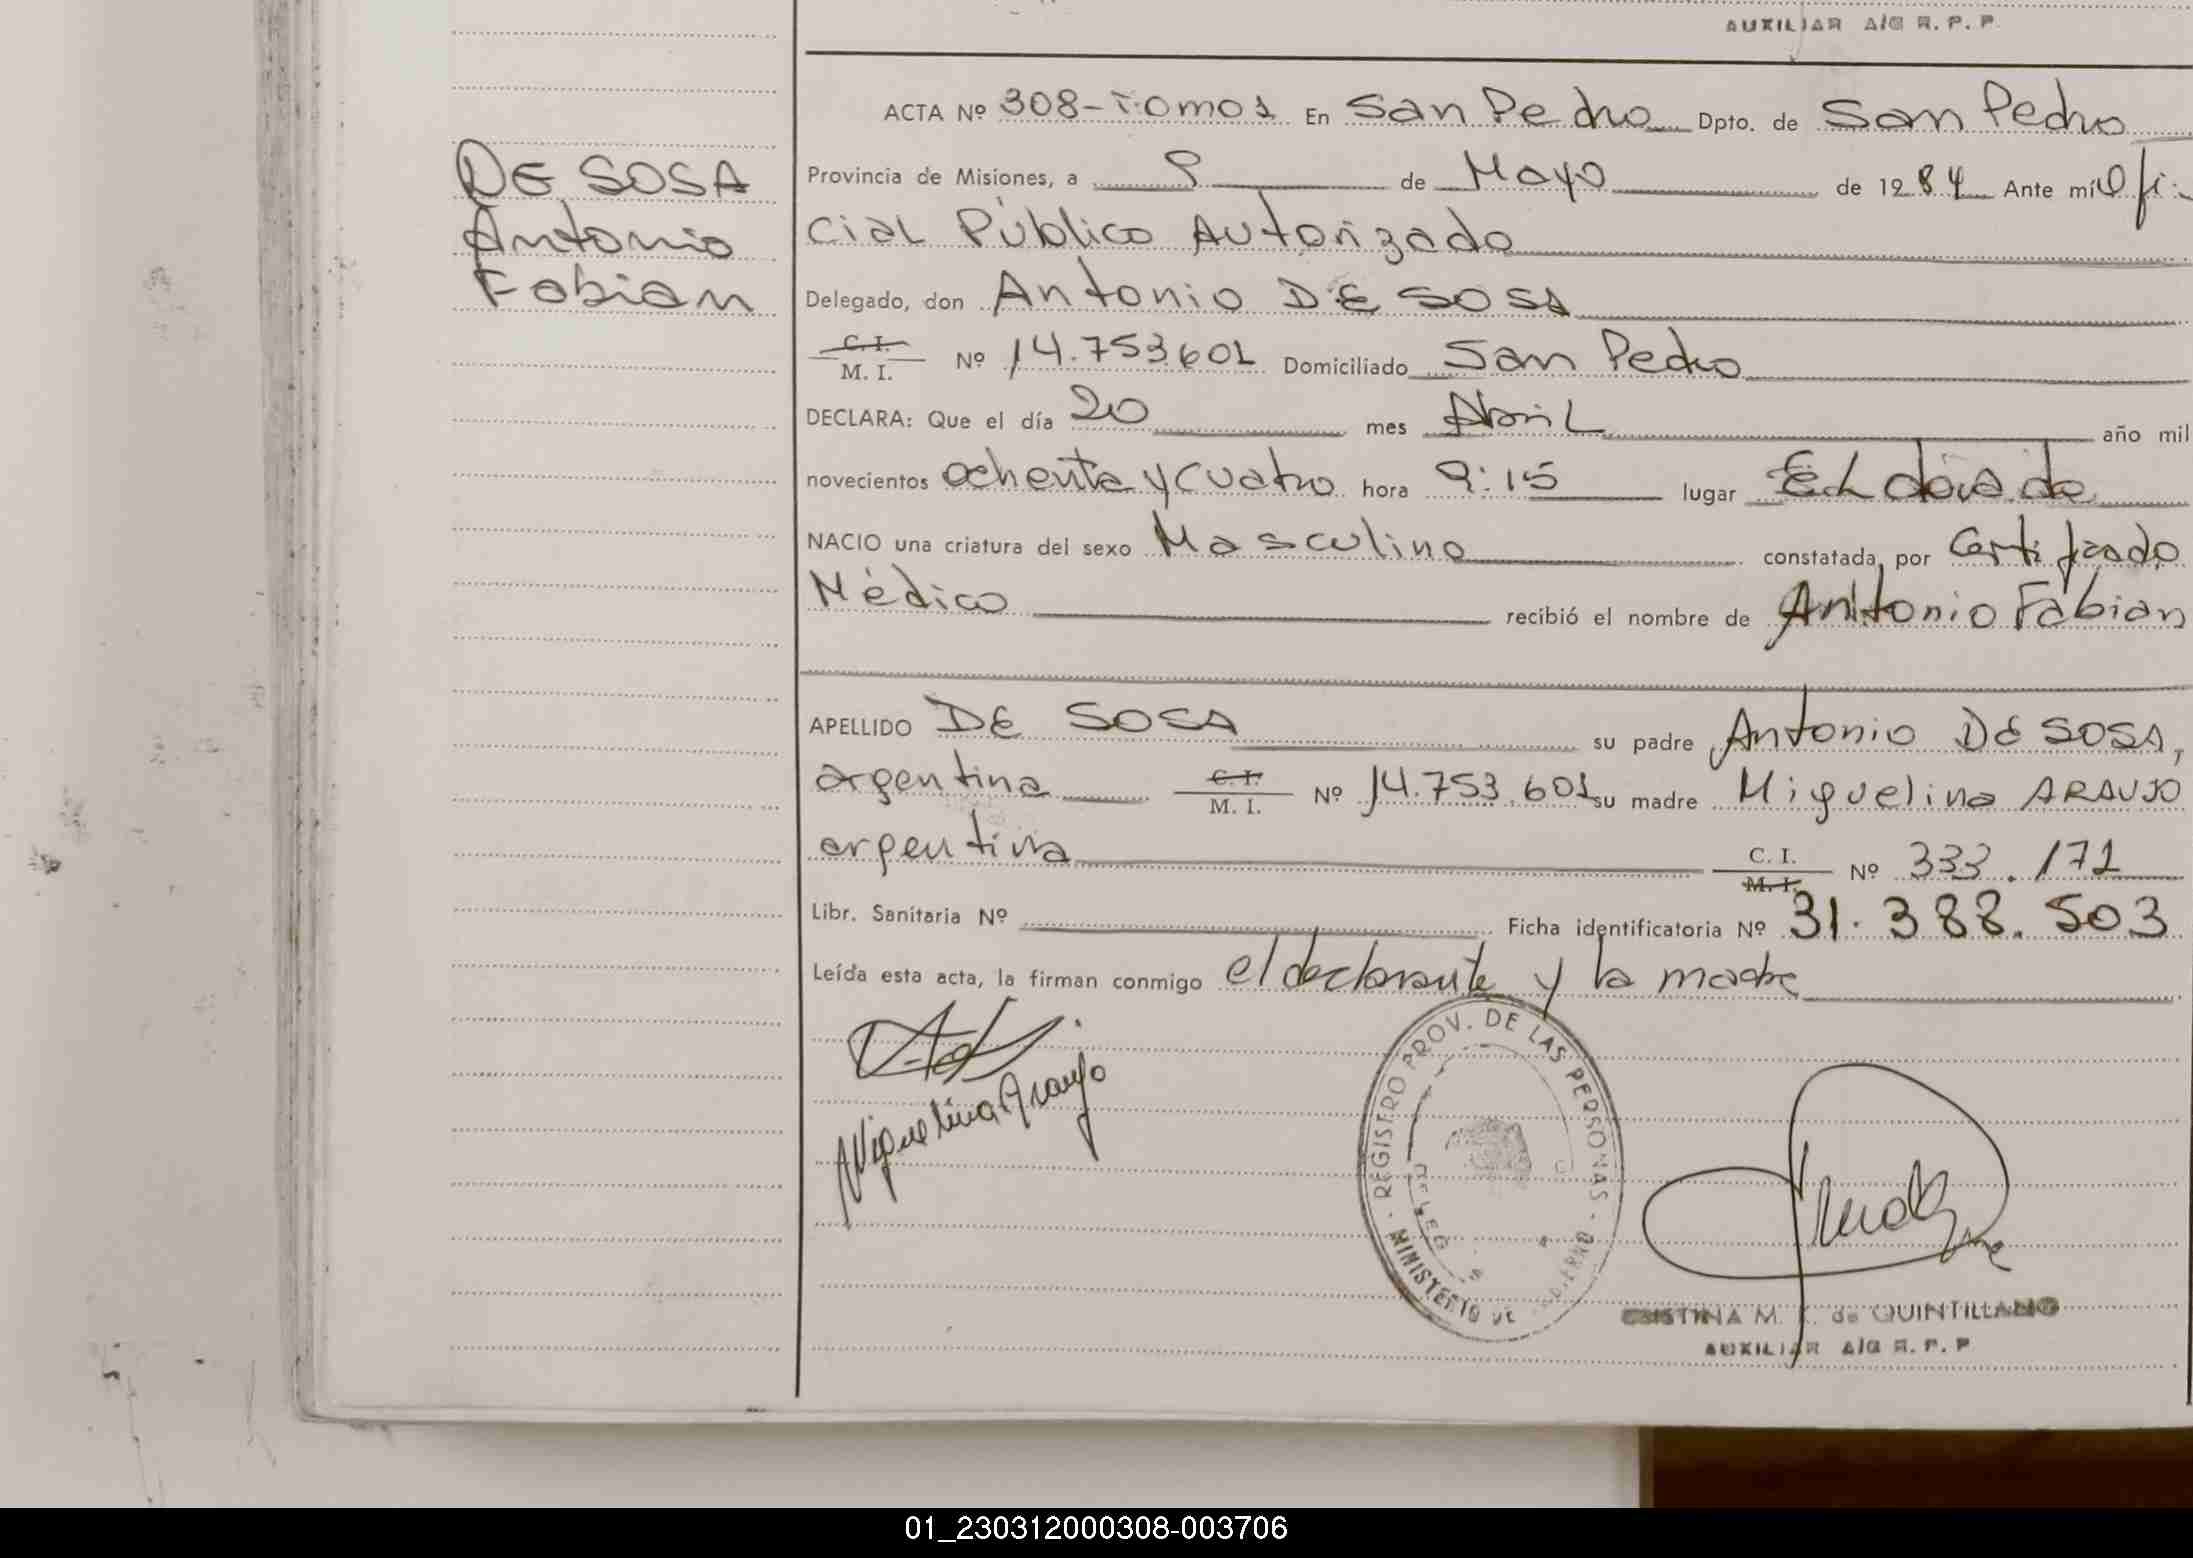 AUXILIAR A/G R. P. P.
ACTA Nº 308-Tomo 1 En San Pedro Dpto. de San Pedro
DE SOSA
Antonio
Fabian
Provincia de Misiones, a 9 de Mayo de 1984 Ante mí Ofi-
cial Público Autorizado
Delegado, don Antonio DE SOSA
C. I.
M. I. Nº 14.753.601 Domiciliado San Pedro
DECLARA: Que el día 20 mes Abril año mil
novecientos ochenta y cuatro hora 9:15 lugar Eldorado
NACIO una criatura del sexo Masculino constatada por Certificado
Médico recibió el nombre de Antonio Fabian
APELLIDO DE SOSA su padre Antonio DE SOSA,
argentina C. I. M. I. Nº 14.753.601 su madre Miguelina ARAUJO
argentina C. I. M. I. Nº 333.171
Libr. Sanitaria Nº Ficha identificatoria Nº 31.388.503
Leída esta acta, la firman conmigo el declarante y la madre
Miguelina Araujo
REGISTRO PROV. DE LAS PERSONAS
MINISTERIO DE GOBIERNO
CRISTINA M. K. de QUINTILLANO
AUXILIAR A/G R. P. P
01_230312000308-003706